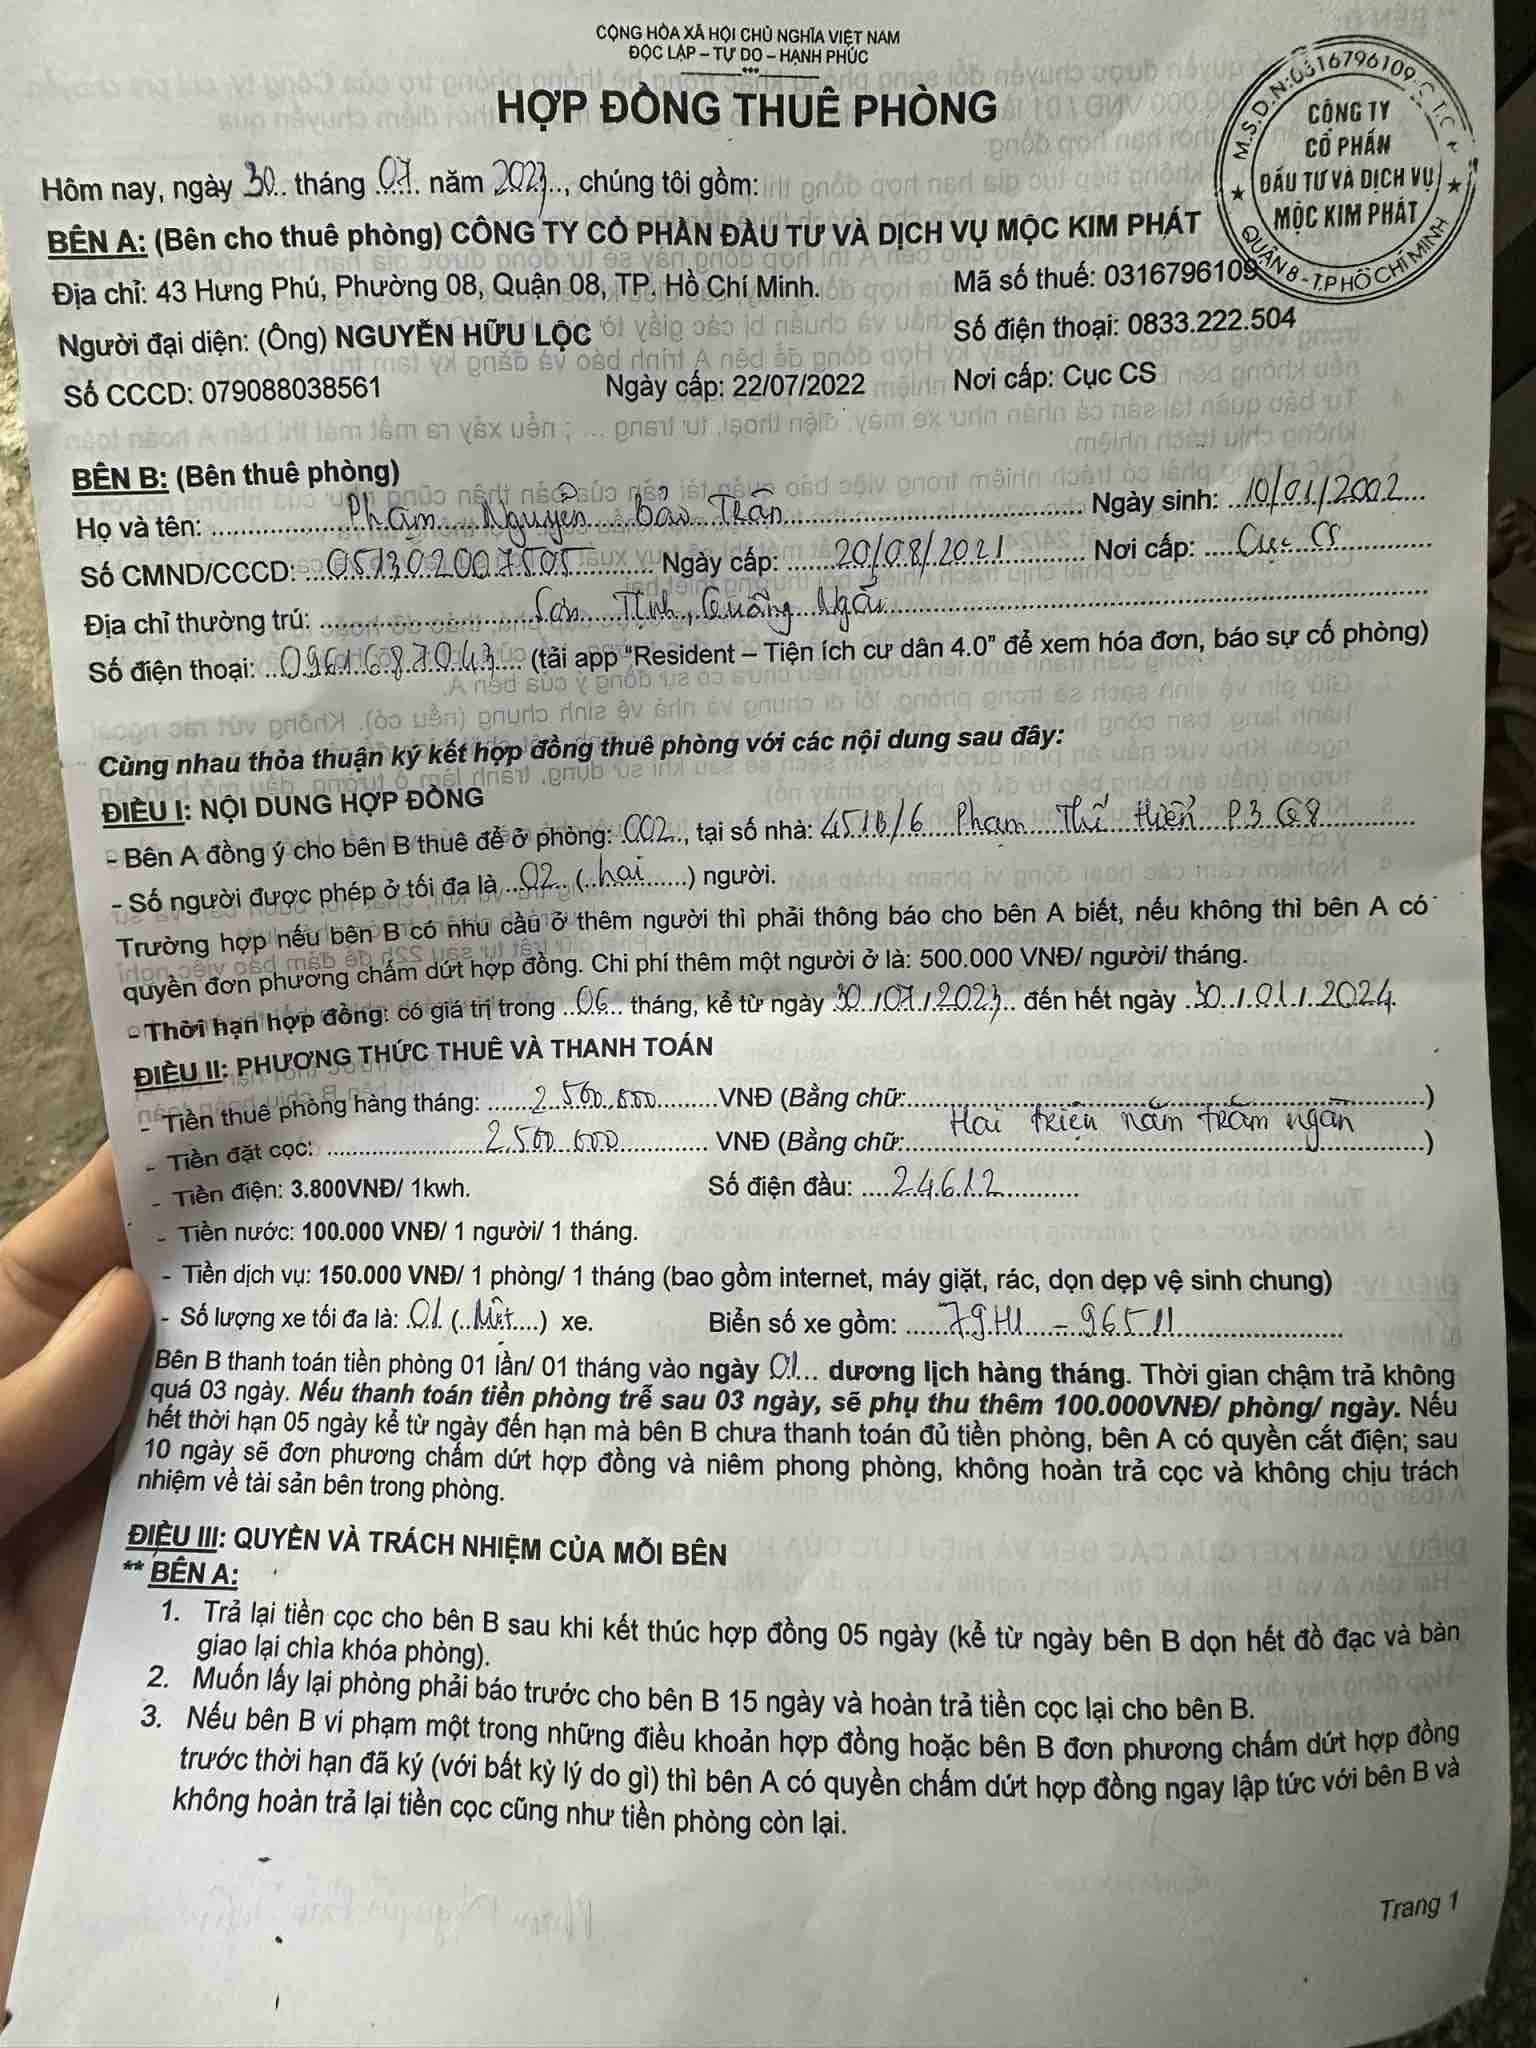 CỘNG HÒA XÃ HỘI CHỦ NGHĨA VIỆT NAM
ĐỘC LẬP – TỰ DO – HẠNH PHÚC
HỢP ĐỒNG THUÊ PHÒNG
M.S.D.N:0316796109-C.T.C
CÔNG TY
CỔ PHẦN
ĐẦU TƯ VÀ DỊCH VỤ
MỘC KIM PHÁT
QUẬN 8 - T.P HỒ CHÍ MINH
Hôm nay, ngày 30 tháng 07 năm 2023, chúng tôi gồm:
BÊN A: (Bên cho thuê phòng) CÔNG TY CỔ PHẦN ĐẦU TƯ VÀ DỊCH VỤ MỘC KIM PHÁT
Địa chỉ: 43 Hưng Phú, Phường 08, Quận 08, TP. Hồ Chí Minh. Mã số thuế: 0316796109
Người đại diện: (Ông) NGUYỄN HỮU LỘC Số điện thoại: 0833.222.504
Số CCCD: 079088038561 Ngày cấp: 22/07/2022 Nơi cấp: Cục CS
BÊN B: (Bên thuê phòng)
Họ và tên: Phạm Nguyễn Bảo Trân Ngày sinh: 10/01/2002
Số CMND/CCCD: 051302007505 Ngày cấp: 20/08/2021 Nơi cấp: Cục CS
Địa chỉ thường trú: Sơn Tịnh, Quảng Ngãi
Số điện thoại: 0961687043 (tải app “Resident – Tiện ích cư dân 4.0” để xem hóa đơn, báo sự cố phòng)
Cùng nhau thỏa thuận ký kết hợp đồng thuê phòng với các nội dung sau đây:
ĐIỀU I: NỘI DUNG HỢP ĐỒNG
- Bên A đồng ý cho bên B thuê để ở phòng: 002, tại số nhà: 451B/6 Phạm Thế Hiển P3 Q8
- Số người được phép ở tối đa là 02 (hai) người.
Trường hợp nếu bên B có nhu cầu ở thêm người thì phải thông báo cho bên A biết, nếu không thì bên A có
quyền đơn phương chấm dứt hợp đồng. Chi phí thêm một người ở là: 500.000 VNĐ/ người/ tháng.
- Thời hạn hợp đồng: có giá trị trong 06 tháng, kể từ ngày 30/07/2023 đến hết ngày 30/01/2024.
ĐIỀU II: PHƯƠNG THỨC THUÊ VÀ THANH TOÁN
- Tiền thuê phòng hàng tháng: 2.500.000 VNĐ (Bằng chữ: )
- Tiền đặt cọc: 2.500.000 VNĐ (Bằng chữ: Hai triệu năm trăm ngàn )
- Tiền điện: 3.800VNĐ/ 1kwh. Số điện đầu: 24612
- Tiền nước: 100.000 VNĐ/ 1 người/ 1 tháng.
- Tiền dịch vụ: 150.000 VNĐ/ 1 phòng/ 1 tháng (bao gồm internet, máy giặt, rác, dọn dẹp vệ sinh chung)
- Số lượng xe tối đa là: 01 (Một) xe. Biển số xe gồm: 79H1 - 96511
Bên B thanh toán tiền phòng 01 lần/ 01 tháng vào ngày 01 dương lịch hàng tháng. Thời gian chậm trả không
quá 03 ngày. Nếu thanh toán tiền phòng trễ sau 03 ngày, sẽ phụ thu thêm 100.000VNĐ/ phòng/ ngày. Nếu
hết thời hạn 05 ngày kể từ ngày đến hạn mà bên B chưa thanh toán đủ tiền phòng, bên A có quyền cắt điện; sau
10 ngày sẽ đơn phương chấm dứt hợp đồng và niêm phong phòng, không hoàn trả cọc và không chịu trách
nhiệm về tài sản bên trong phòng.
ĐIỀU III: QUYỀN VÀ TRÁCH NHIỆM CỦA MỖI BÊN
** BÊN A:
1. Trả lại tiền cọc cho bên B sau khi kết thúc hợp đồng 05 ngày (kể từ ngày bên B dọn hết đồ đạc và bàn
giao lại chìa khóa phòng).
2. Muốn lấy lại phòng phải báo trước cho bên B 15 ngày và hoàn trả tiền cọc lại cho bên B.
3. Nếu bên B vi phạm một trong những điều khoản hợp đồng hoặc bên B đơn phương chấm dứt hợp đồng
trước thời hạn đã ký (với bất kỳ lý do gì) thì bên A có quyền chấm dứt hợp đồng ngay lập tức với bên B và
không hoàn trả lại tiền cọc cũng như tiền phòng còn lại.
Trang 1